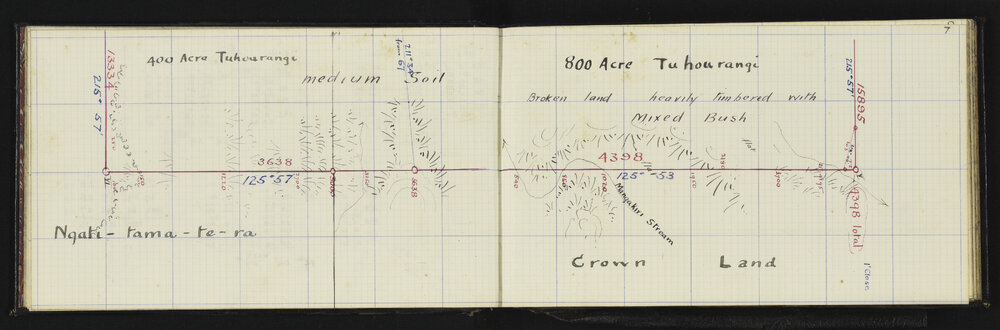 400 Acre Tuhourangi
medium Soil
13334
215° 57'
211° 34'
from 61
3638
125° 57'
3638
Ngati - tama - te - ra
7
800 Acre Tuhourangi
Broken land heavily timbered with
Mixed Bush
15895
215° 57'
flat
4398
125° 53
840
1020
1920
Mangakiri Stream
4398 total
1' Close
Crown Land